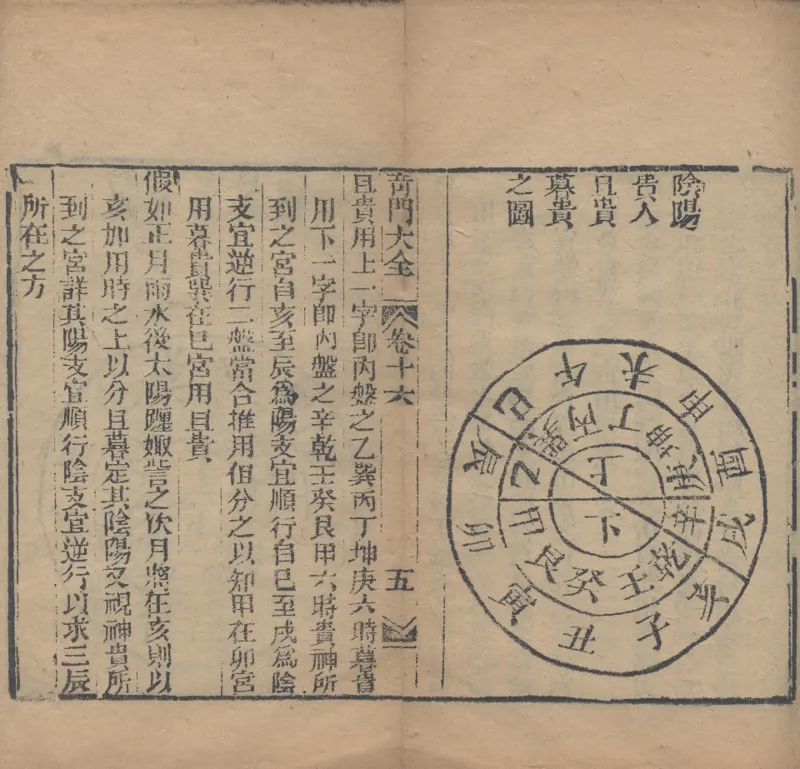 陰陽
告人
旦貴
暮貴
之圖
巳午未申酉戌亥子丑寅卯辰
乙巽丙丁坤庚辛乾壬癸艮
上
下
奇門大全
卷十六
五
旦貴用上一字即內盤之乙巽丙丁坤庚六時暮貴
用下一字即內盤之辛乾壬癸艮甲六時貴神所
到之宮自亥至辰爲陽支宜順行自巳至戌爲陰
支宜逆行二盤當合推用但分之以知甲在卯宮
用暮貴巽在巳宮用旦貴
假如正月雨水後太陽躔娵訾之次月將在亥則以
亥加用時之上以分旦暮定其陰陽又視神貴所
到之宮詳其陽支宜順行陰支宜逆行以求三辰
所在之方